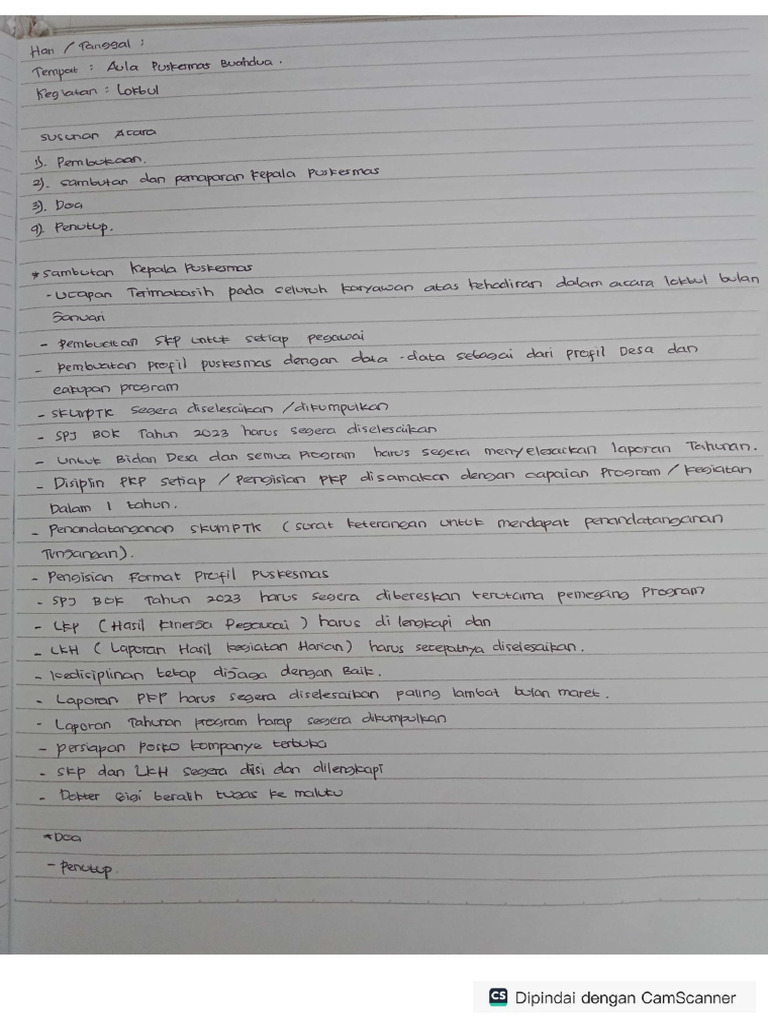 Hari / Tanggal :
Tempat : Aula Puskesmas Buahdua .
Kegiatan : Lokbul
Susunan Acara
1). Pembukaan.
2). Sambutan dan pemaparan Kepala Puskesmas
3). Doa
4). Penutup.
* Sambutan Kepala Puskesmas
- Ucapan Terimakasih pada seluruh karyawan atas kehadiran dalam acara lokbul bulan
Januari
- Pembuatan SKP untuk setiap pegawai
- Pembuatan profil puskesmas dengan data - data sebagai dari profil Desa dan
cakupan program
- SKUMPTK segera diselesaikan / dikumpulkan
- SPJ BOK Tahun 2023 harus segera diselesaikan
- Untuk Bidan Desa dan semua Program harus segera menyelesaikan laporan Tahunan.
- Disiplin PKP setiap / Pengisian PKP disamakan dengan capaian Program / Kegiatan
Dalam 1 tahun.
- Penandatanganan SKUMPTK ( surat keterangan untuk mendapat penandatanganan
Tunjangan ).
- Pengisian Format Profil Puskesmas
- SPJ BOK Tahun 2023 harus segera dibereskan terutama pemegang Program
- LKP ( Hasil Kinerja Pegawai ) harus di lengkapi dan
- LKH ( Laporan Hasil Kegiatan Harian) harus secepatnya diselesaikan.
- Kedisiplinan tetap dijaga dengan Baik.
- Laporan PKP harus segera diselesaikan paling lambat bulan maret.
- Laporan Tahunan program harap segera dikumpulkan
- Persiapan Posko kompanye terbuka
- SKP dan LKH segera diisi dan dilengkapi
- Dokter Gigi beralih tugas ke maluku
* Doa
- Penutup.
CS Dipindai dengan CamScanner